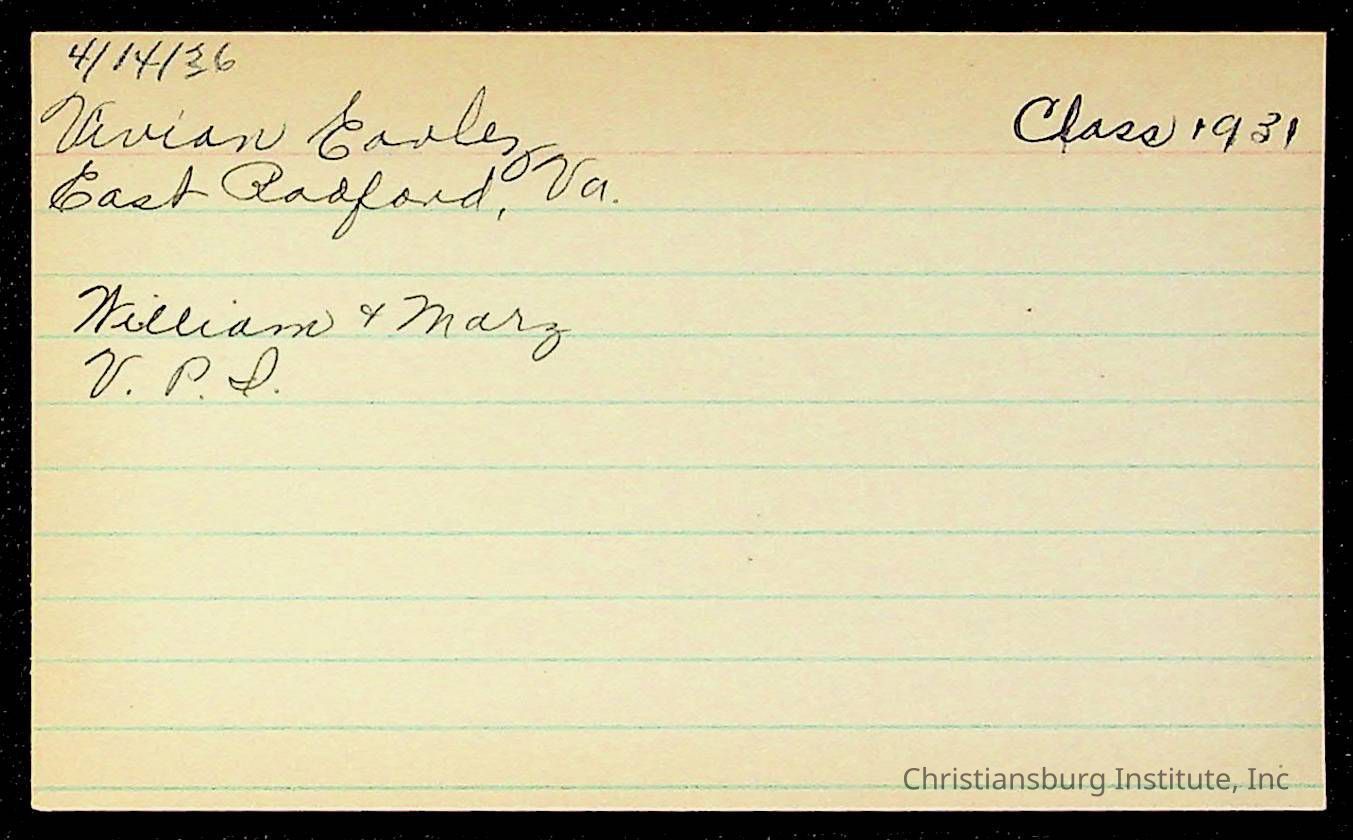 4/14/36
Vivian Eaoley Class 1931
East Radford, Va.
William & Mary
V. P. I.
Christiansburg Institute, Inc